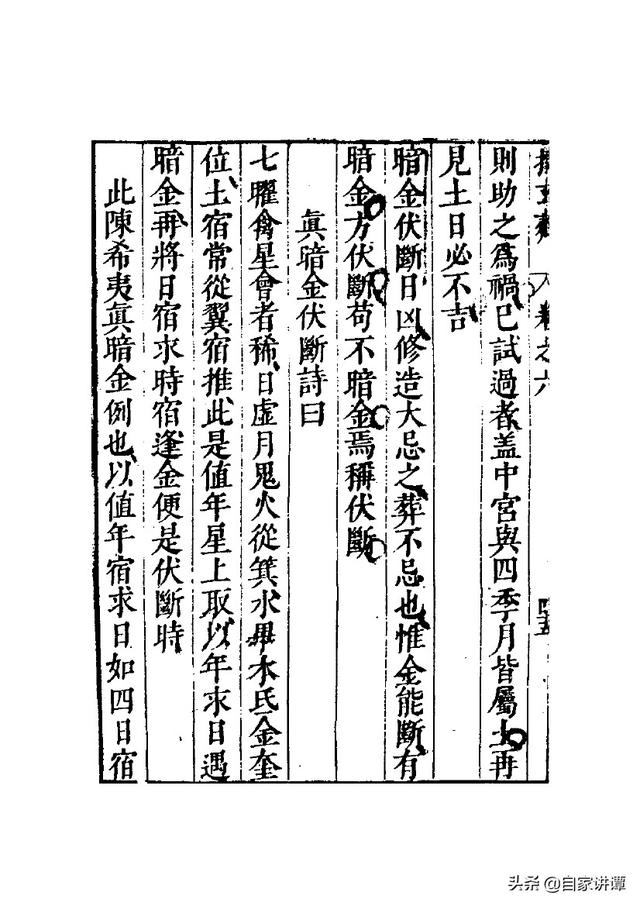 卷之六
則助之爲禍已試過者蓋中宮與四季月皆屬土再
見土日必不吉
暗金伏斷日凶修造大忌之葬不忌也惟金能斷有
暗金方伏斷苟不暗金焉稱伏斷
眞暗金伏斷詩曰
七曜禽星會者稀日虛月鬼火從箕水畢木氐金奎
位土宿常從翼宿推此是值年星上取以年求日遇
暗金再將日宿求時宿逢金便是伏斷時
此陳希夷眞暗金例也以值年宿求日如四日宿
头条 @自家讲谭